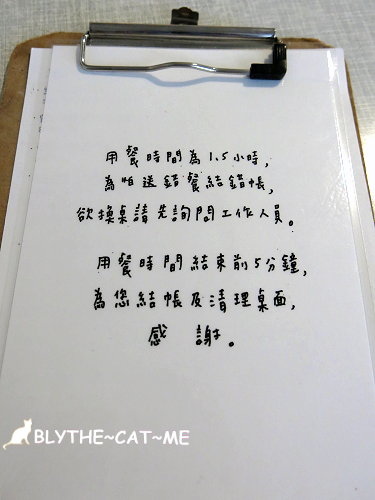 用餐時間為1.5小時,
為怕送錯餐結錯帳,
欲換桌請先詢問工作人員。
用餐時間結束前5分鐘,
為您結帳及清理桌面,
感 謝。
BLYTHE~CAT~ME